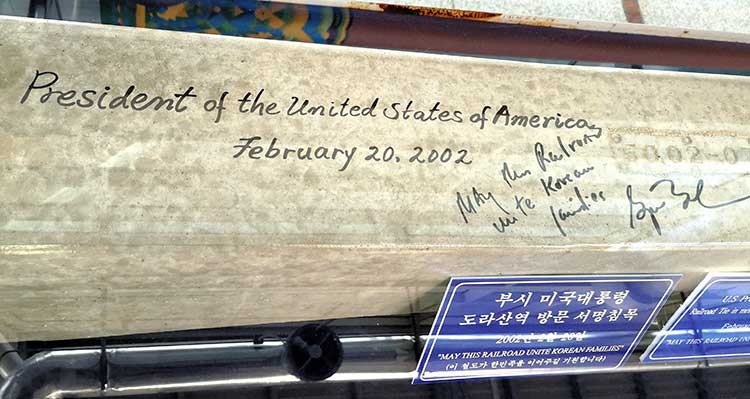 President of the United States of America
February 20. 2002
May this Railroad
unite Korean
families
부시 미국대통령
도라산역 방문 서명침목
2002년 2월 20일
"MAY THIS RAILROAD UNITE KOREAN FAMILIES"
(이 철도가 한민족을 이어주길 기원합니다)
U.S Pr
Railroad Tie in me
Febru
"MAY THIS RAILROAD UN